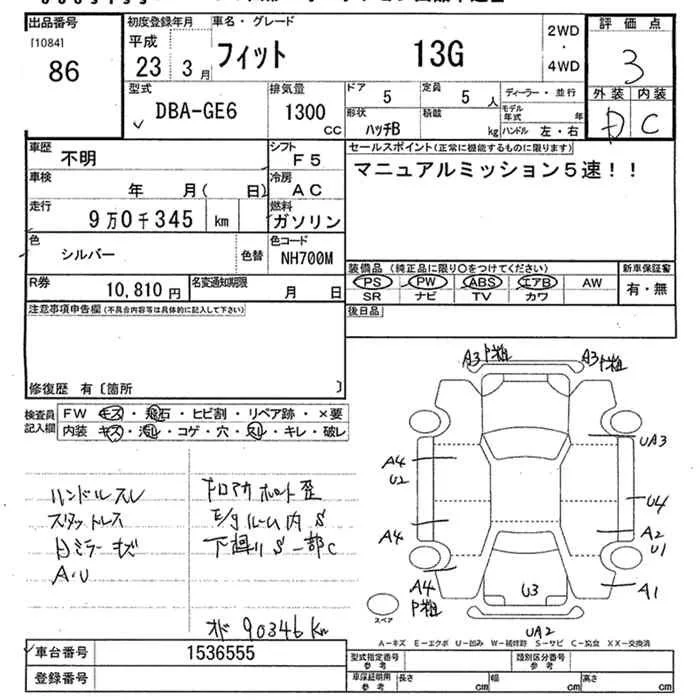 出品番号
[1084]
86
初度登録年月
平成
23 3月
車名・グレード
フィット 13G
2WD
・
4WD
評価点
3
外装 内装
D C
型式
DBA-GE6
排気量
1300
CC
ドア
5
定員
5 人
形状
ハッチB
積載
kg
ディーラー・並行
モデル年式 年
ハンドル 左・右
車歴
不明
シフト
F5
車検
年 月( 日)
冷房
AC
走行
9万0千345 km
燃料
ガソリン
色
シルバー
色替
色コード
NH700M
R券
10,810円
名変通知期限
月 日
セールスポイント(正常に機能するものに限ります)
マニュアルミッション5速!!
装備品(純正品に限り○をつけてください)
PS PW ABS エアB AW
SR ナビ TV カワ
新車保証書
有・無
後日品
注意事項申告欄(不具合内容等は具体的に記入して下さい)
修復歴 有〔箇所 〕
検査員
記入欄
FW キズ・飛石・ヒビ割・リペア跡・×要
内装 キズ・汚レ・コゲ・穴・スレ・キレ・破レ
ハンドルスレ
スタットレス
ドミラーキズ
A・U
ドロアカ
E/gルーム内S
下廻りS一部C
オド 90346Km
A3
A3
UA3
A4
U2
U4
A4
A2
U1
A4
U3
A1
UA2
スペア
A-キズ E-エクボ U-凹み W-補修跡 S-サビ C-腐食 XX-交換済
車台番号
1536555
登録番号
型式指定番号
参考
類別区分番号
参考
車保証明用
参考
長さ cm
幅 cm
高さ cm